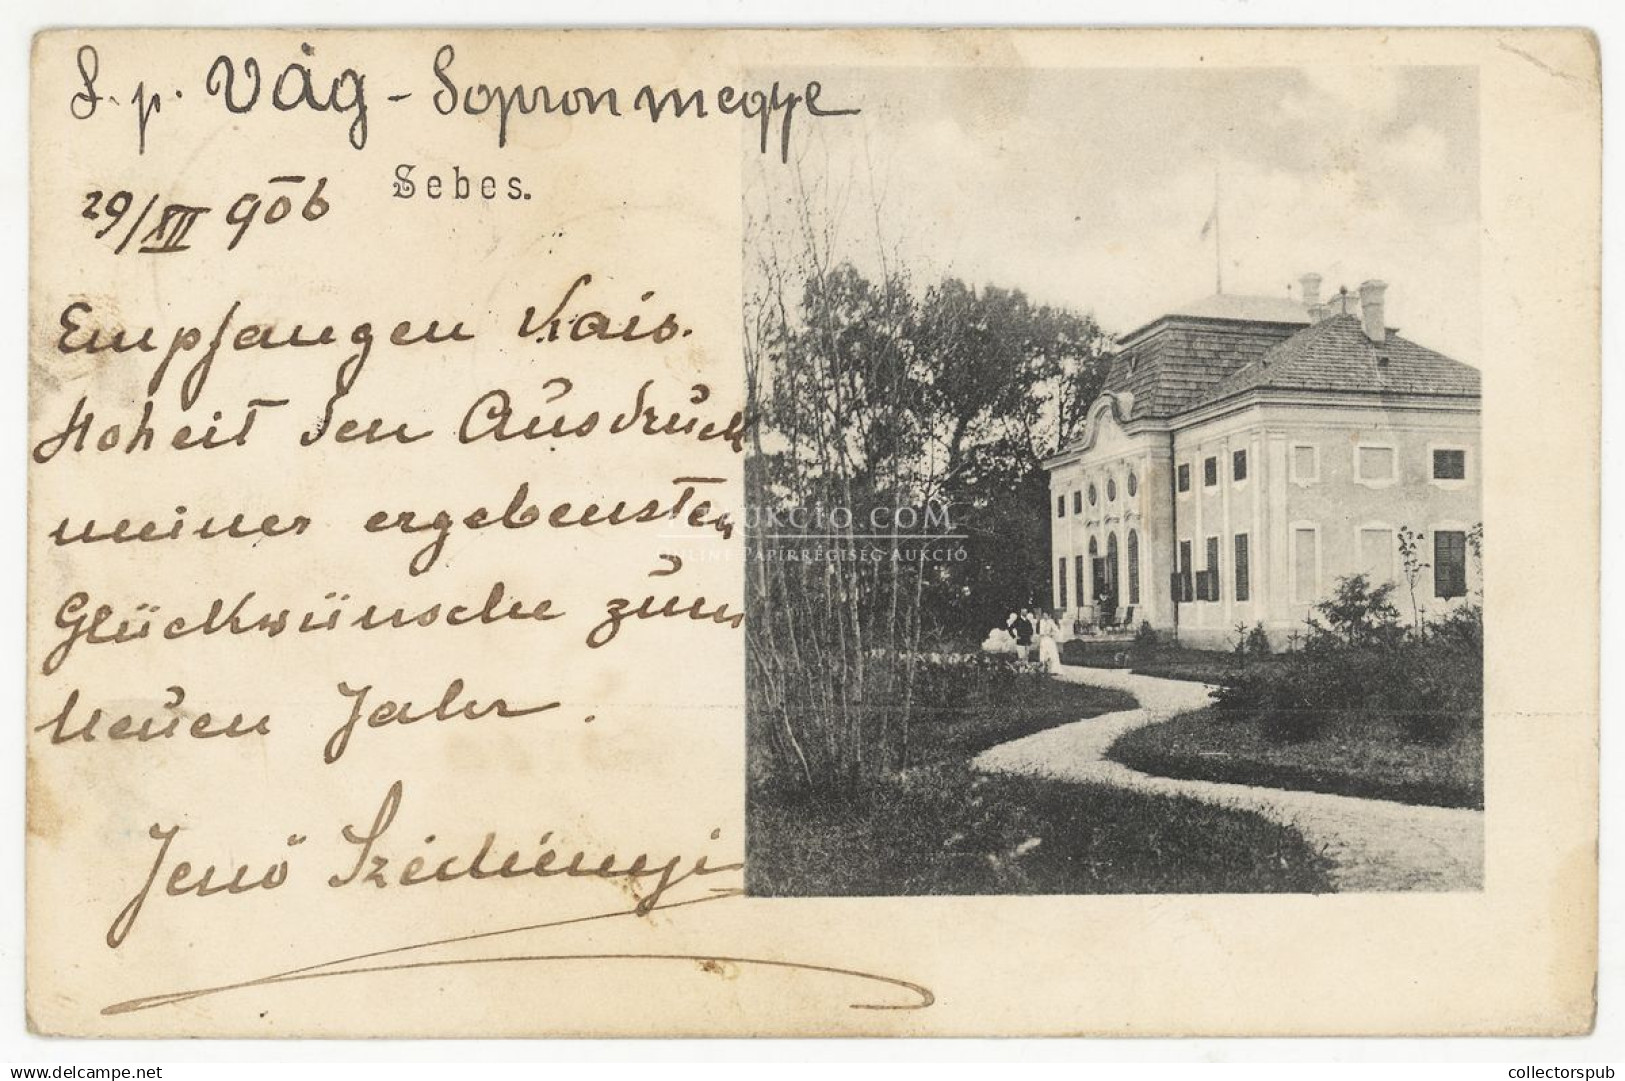 S. p. Vág - Sopronmegye
Sebes.
29/XII 906
Empfangen Kais.
Hoheit den Ausdruck
meiner ergebensten
Glückwünsche zum
Neuen Jahr.
Jenő Széchényi
AUKCIO.COM
ONLINE PAPÍRRÉGISÉG AUKCIÓ
delcampe.net
collectorspub